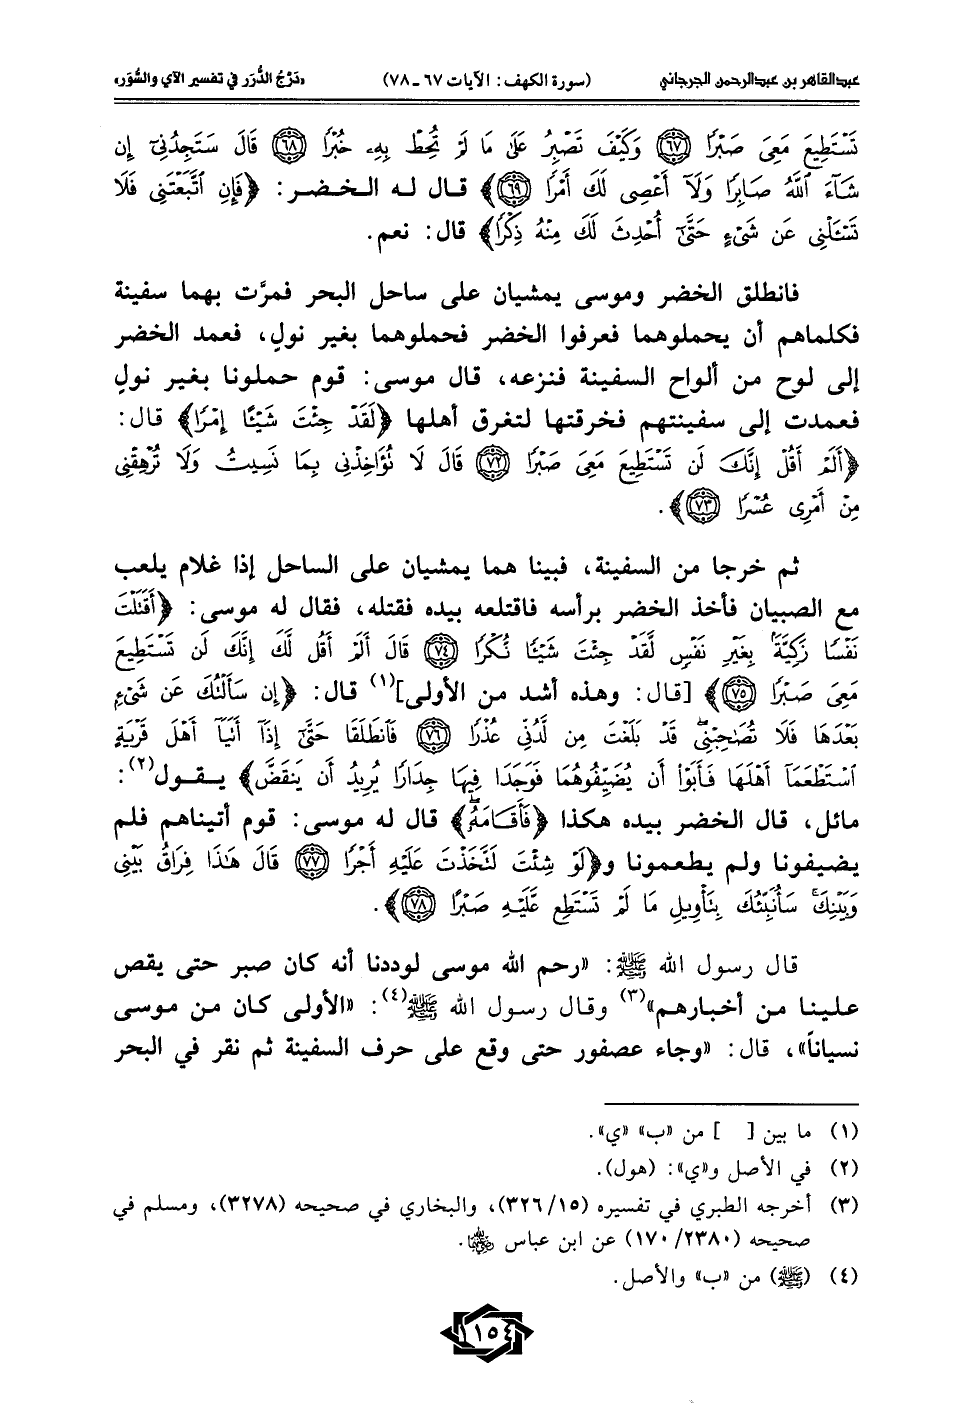 عبدالقاهر بن عبدالرحمن الجرجاني (سورة الكهف: الآيات ٦٧ ـ ٧٨) «دَرْجُ الدُّرَر في تفسير الآي والسُّوَر»
تَسْتَطِيعَ مَعِىَ صَبْرًا ﴿٦٧﴾ وَكَيْفَ تَصْبِرُ عَلَىٰ مَا لَمْ تُحِطْ بِهِۦ خُبْرًا ﴿٦٨﴾ قَالَ سَتَجِدُنِىٓ إِن
شَآءَ ٱللَّهُ صَابِرًا وَلَآ أَعْصِى لَكَ أَمْرًا ﴿٦٩﴾﴾ قال له الخضر: ﴿فَإِنِ ٱتَّبَعْتَنِى فَلَا
تَسْـَٔلْنِى عَن شَىْءٍ حَتَّىٰٓ أُحْدِثَ لَكَ مِنْهُ ذِكْرًا﴾ قال: نعم.
فانطلق الخضر وموسى يمشيان على ساحل البحر فمرَّت بهما سفينة
فكلماهم أن يحملوهما فعرفوا الخضر فحملوهما بغير نولٍ، فعمد الخضر
إلى لوح من ألواح السفينة فنزعه، قال موسى: قوم حملونا بغير نولٍ
فعمدت إلى سفينتهم فخرقتها لتغرق أهلها ﴿لَقَدْ جِئْتَ شَيْئًا إِمْرًا﴾ قال:
﴿أَلَمْ أَقُلْ إِنَّكَ لَن تَسْتَطِيعَ مَعِىَ صَبْرًا ﴿٧٢﴾ قَالَ لَا تُؤَاخِذْنِى بِمَا نَسِيتُ وَلَا تُرْهِقْنِى
مِنْ أَمْرِى عُسْرًا ﴿٧٣﴾﴾.
ثم خرجا من السفينة، فبينا هما يمشيان على الساحل إذا غلام يلعب
مع الصبيان فأخذ الخضر برأسه فاقتلعه بيده فقتله، فقال له موسى: ﴿أَقَتَلْتَ
نَفْسًا زَكِيَّةًۢ بِغَيْرِ نَفْسٍ لَّقَدْ جِئْتَ شَيْئًا نُّكْرًا ﴿٧٤﴾ قَالَ أَلَمْ أَقُل لَّكَ إِنَّكَ لَن تَسْتَطِيعَ
مَعِىَ صَبْرًا ﴿٧٥﴾﴾ [قال: وهذه أشد من الأولى](١) قال: ﴿إِن سَأَلْتُكَ عَن شَىْءٍ
بَعْدَهَا فَلَا تُصَٰحِبْنِى قَدْ بَلَغْتَ مِن لَّدُنِّى عُذْرًا ﴿٧٦﴾ فَٱنطَلَقَا حَتَّىٰٓ إِذَآ أَتَيَآ أَهْلَ قَرْيَةٍ
ٱسْتَطْعَمَآ أَهْلَهَا فَأَبَوْا۟ أَن يُضَيِّفُوهُمَا فَوَجَدَا فِيهَا جِدَارًا يُرِيدُ أَن يَنقَضَّ﴾ يقول(٢):
مائل، قال الخضر بيده هكذا ﴿فَأَقَامَهُۥ﴾ قال له موسى: قوم أتيناهم فلم
يضيفونا ولم يطعمونا و﴿لَوْ شِئْتَ لَتَّخَذْتَ عَلَيْهِ أَجْرًا ﴿٧٧﴾ قَالَ هَٰذَا فِرَاقُ بَيْنِى
وَبَيْنِكَ سَأُنَبِّئُكَ بِتَأْوِيلِ مَا لَمْ تَسْتَطِع عَّلَيْهِ صَبْرًا ﴿٧٨﴾﴾.
قال رسول الله ﷺ: «رحم الله موسى لوددنا أنه كان صبر حتى يقص
علينا من أخبارهم»(٣) وقال رسول الله ﷺ(٤): «الأولى كان من موسى
نسياناً»، قال: «وجاء عصفور حتى وقع على حرف السفينة ثم نقر في البحر
(١) ما بين [ ] من «ب» «ي».
(٢) في الأصل و«ي»: (هول).
(٣) أخرجه الطبري في تفسيره (٣٢٦/١٥)، والبخاري في صحيحه (٣٢٧٨)، ومسلم في
صحيحه (١٧٠/٢٣٨٠) عن ابن عباس رضي الله عنهما.
(٤) (ﷺ) من «ب» والأصل.
١١٥٤